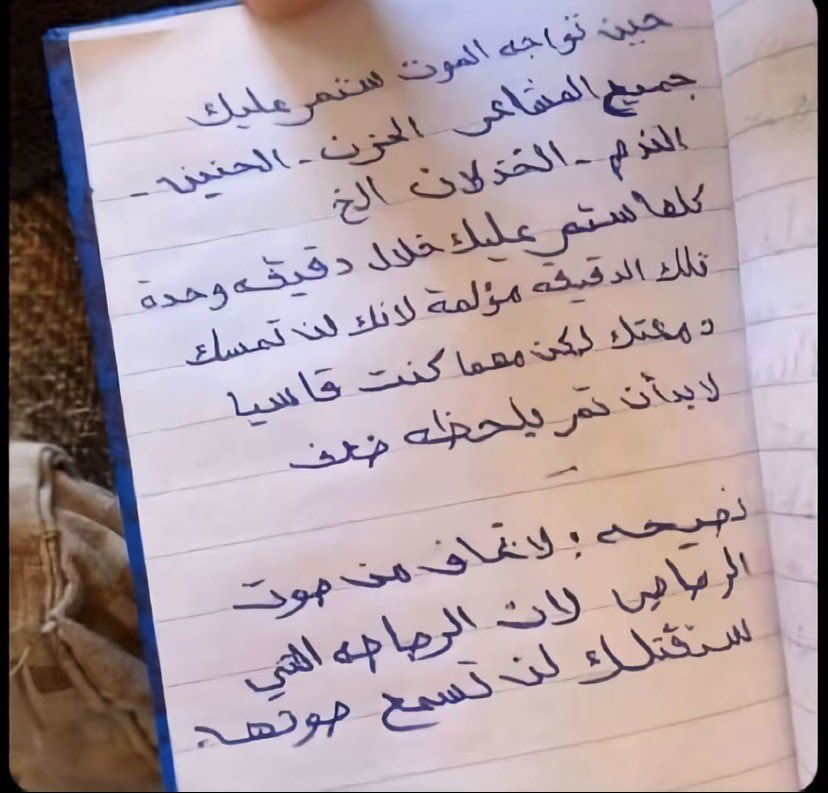 حين تواجه الموت ستمر عليك
جميع المشاعر الحزن - الحنين -
الندم - الخذلان الخ
كلها ستمر عليك خلال دقيقه وحدة
تلك الدقيقه مؤلمة لانك لن تمسك
دمعتك لكن مهما كنت قاسيا
لابدأن تمر بلحظه ضعف
نصيحه : لاتخاف من صوت
الرصاص لان الرصاصه التي
ستقتلك لن تسمع صوتها.